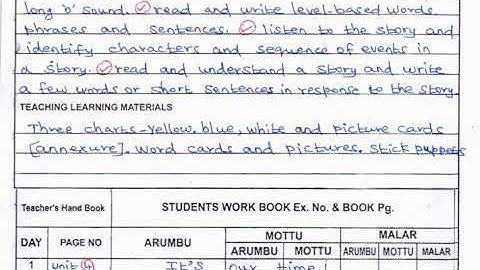 long 'o' sound. read and write level-based words,
phrases and sentences. listen to the story and
identify characters and sequence of events in
a story. read and understand a story and write
a few words or short sentences in response to the story.
TEACHING LEARNING MATERIALS
Three charts-yellow. blue, white and picture cards
[annexure]. word cards and pictures. Stick puppets
Teacher's Hand Book STUDENTS WORK BOOK Ex. No. & BOOK Pg.
DAY PAGE NO ARUMBU MOTTU MALAR
ARUMBU MOTTU ARUMBU MOTTU MALAR
1 Unit 4 It's Our time